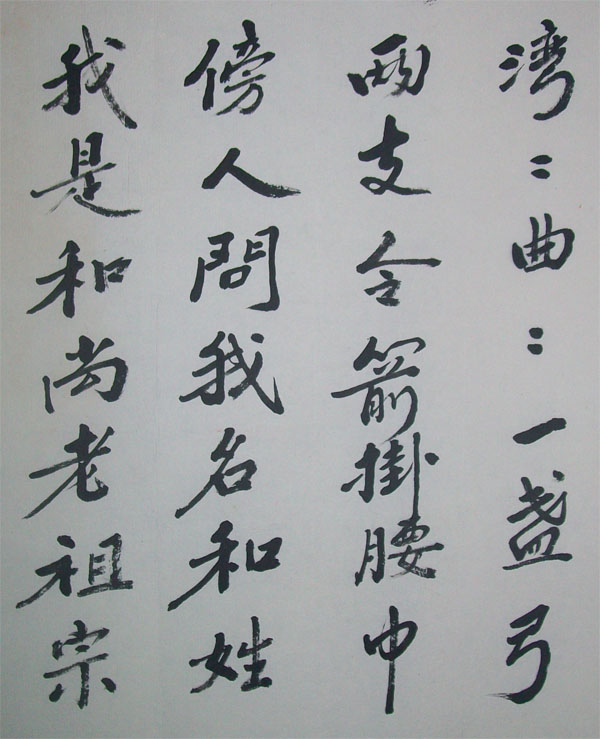 湾::曲::一盏弓
两支令箭掛腰巾
傍人問我名和姓
我是和尚老祖宗